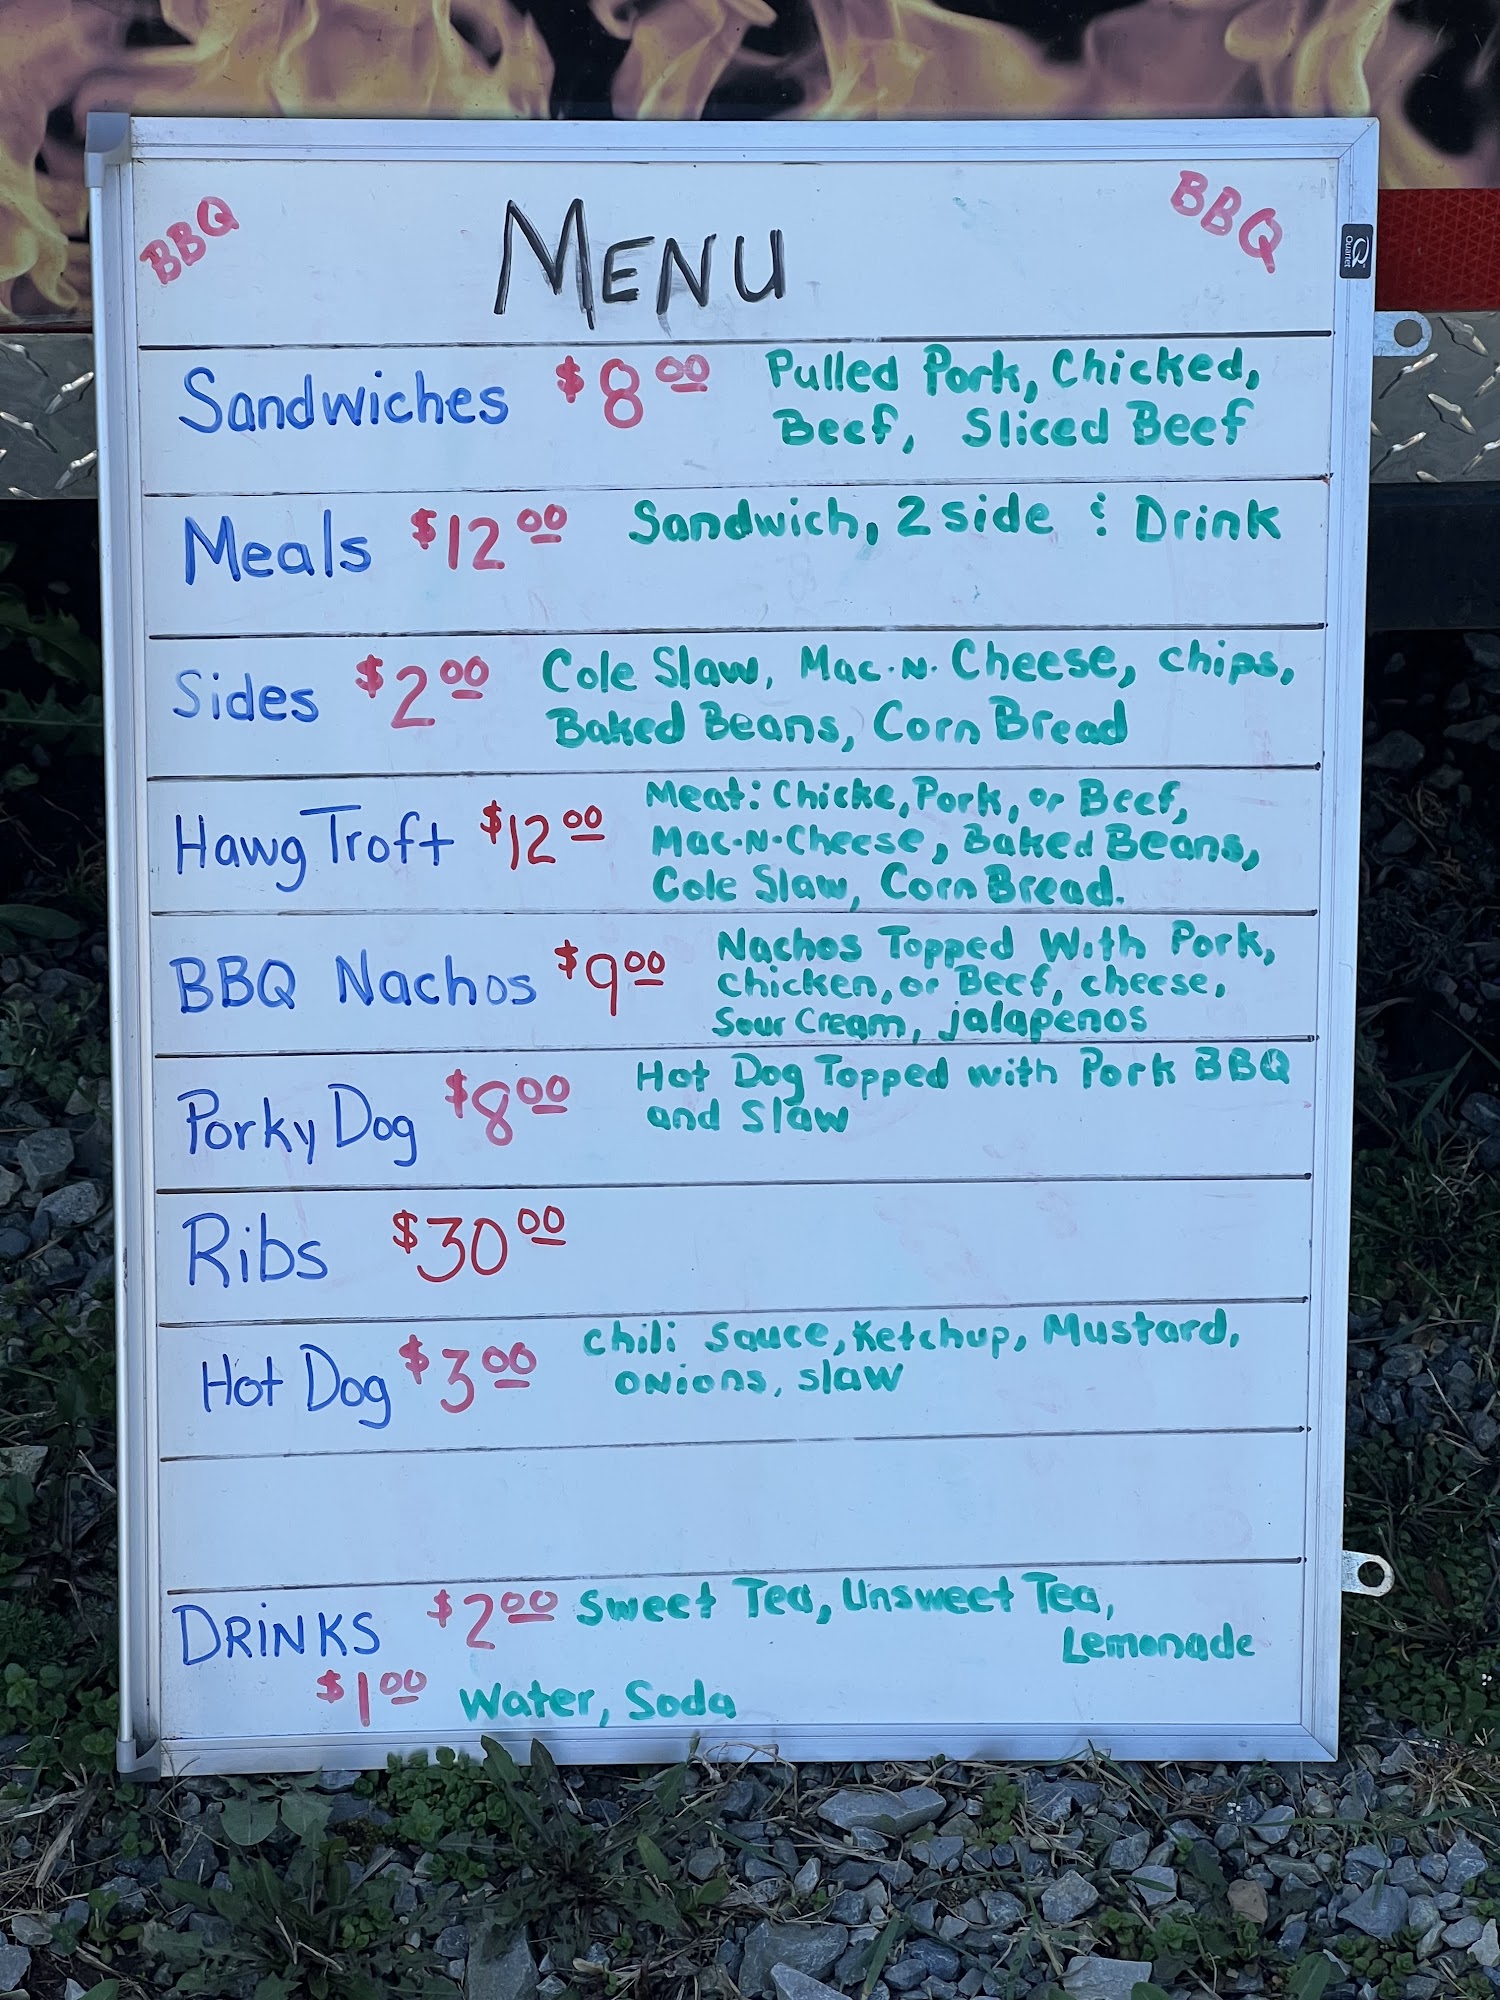 BBQ MENU BBQ
Quartet
Sandwiches $8.00 Pulled Pork, Chicked,
Beef, Sliced Beef
Meals $12.00 Sandwich, 2 side & Drink
Sides $2.00 Cole Slaw, Mac-N-Cheese, chips,
Baked Beans, Corn Bread
Hawg Troft $12.00 Meat: Chicke, Pork, or Beef,
Mac-N-Cheese, Baked Beans,
Cole Slaw, Corn Bread.
BBQ Nachos $9.00 Nachos Topped With Pork,
chicken, or Beef, cheese,
Sour Cream, jalapenos
Porky Dog $8.00 Hot Dog Topped with Pork BBQ
and Slaw
Ribs $30.00
Hot Dog $3.00 Chili Sauce, Ketchup, Mustard,
onions, slaw
DRINKS $2.00 Sweet Tea, Unsweet Tea,
Lemonade
$1.00 Water, Soda